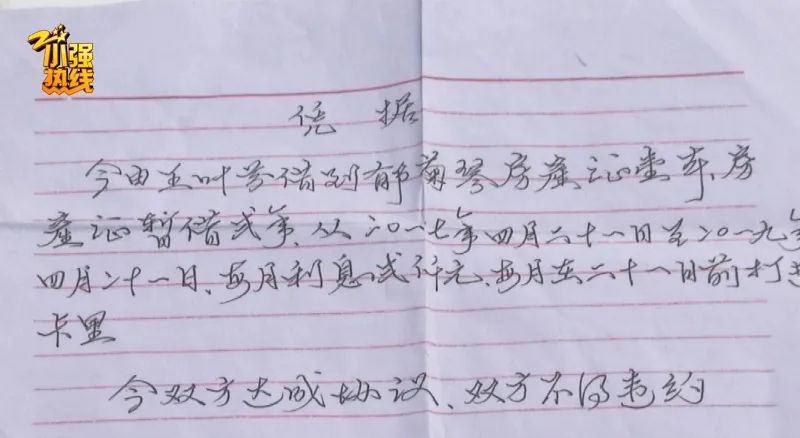 小强热线
凭据
今由王叶芬借到郁菊琴房产证壹本、房
产证暂借弍年、从二0一七年四月二十一日至二0一九年
四月二十一日、每月利息弍仟元、每月在二十一日前打进
卡里
今双方达成协议、双方不得违约